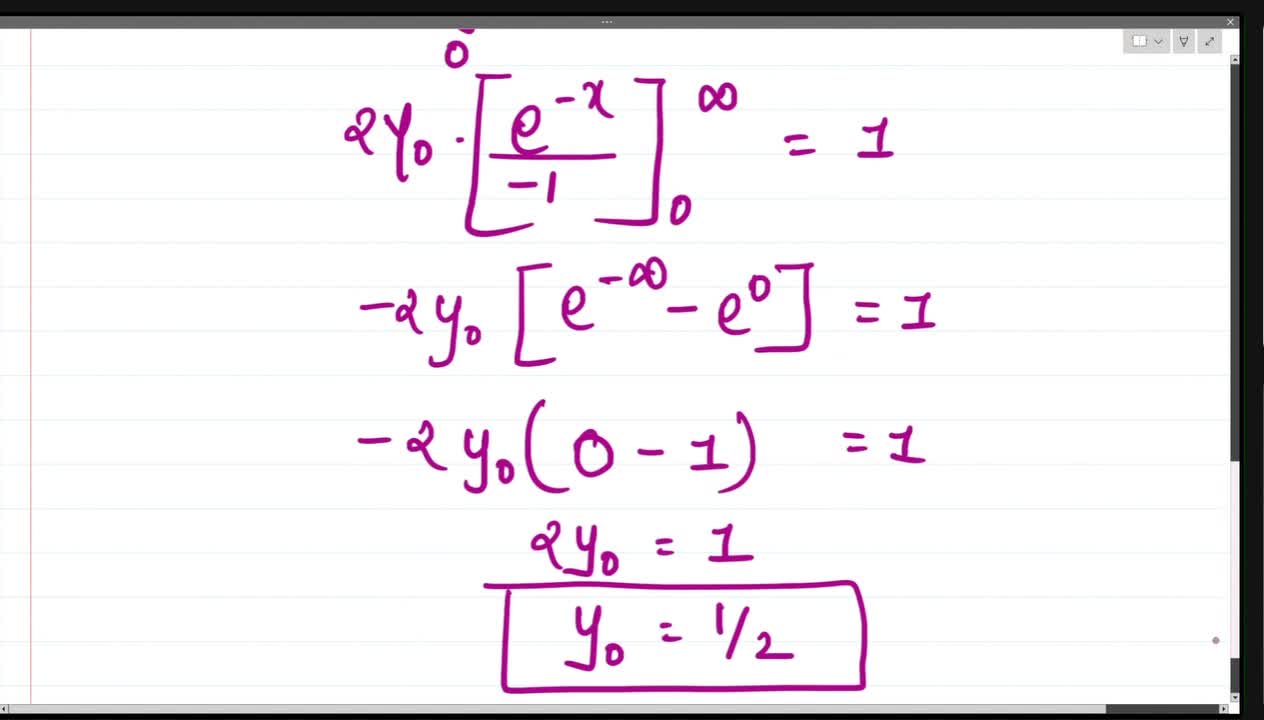 0
2y₀ · [e^{-x} / -1]₀^∞ = 1
-2y₀ [e^{-∞} - e^0] = 1
-2y₀ (0 - 1) = 1
2y₀ = 1
y₀ = 1/2